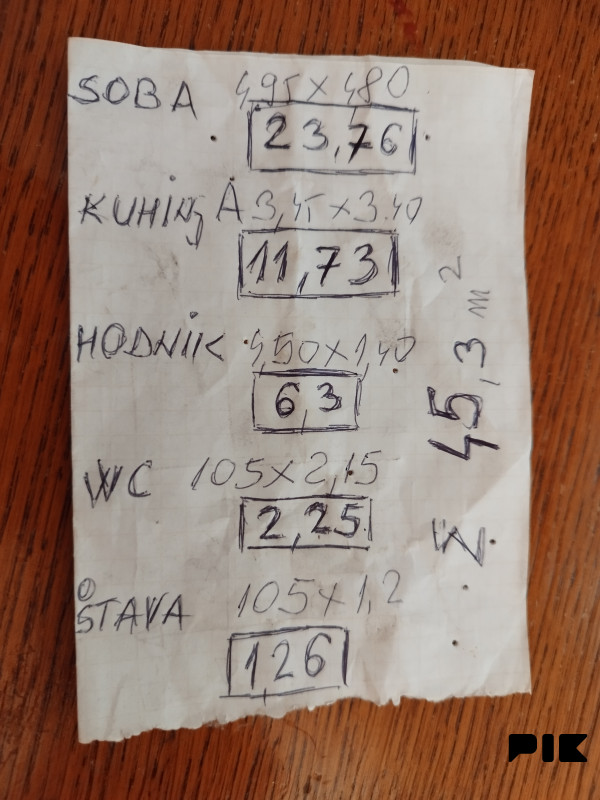 SOBA 4,95 x 4,80
23,76
KUHINJA 3,45 x 3.40
11,73
HODNIK 4,50 x 1,40
6,3
WC 105 x 2,15
2,25
ŠTAVA 105 x 1,2
1,26
Σ. 45,3 m²
PIK